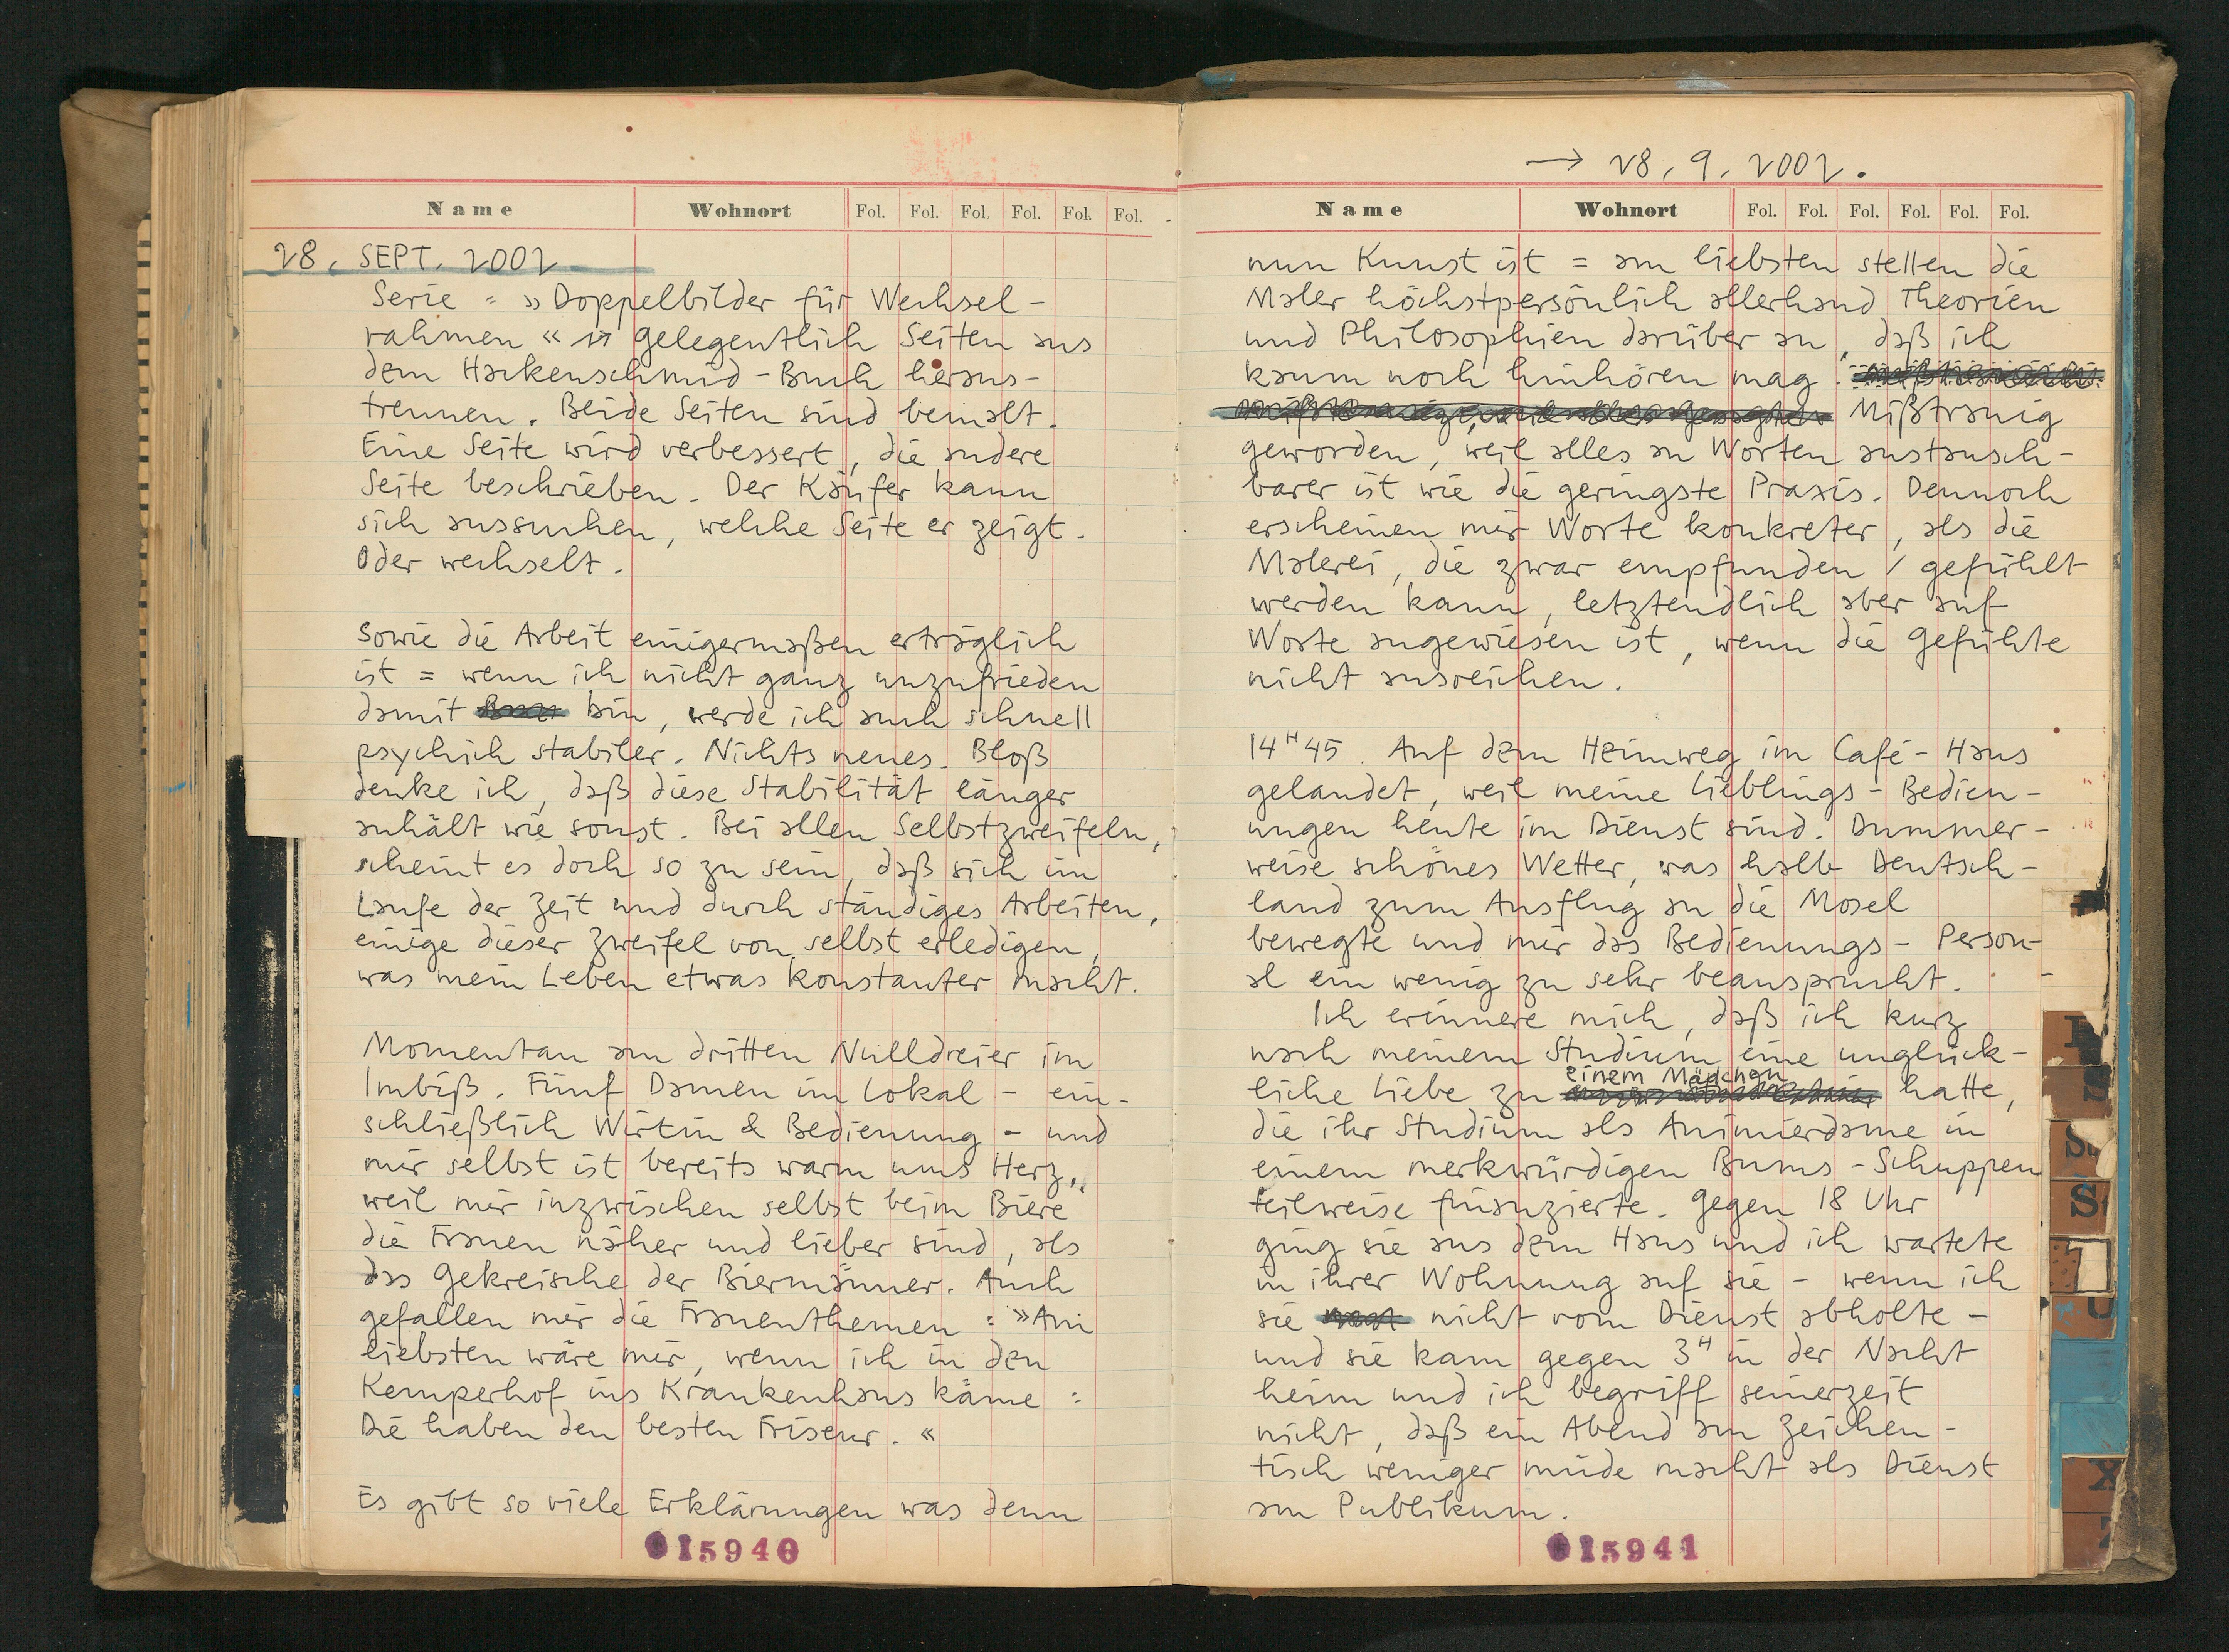 Name Wohnort Fol. Fol. Fol. Fol. Fol. Fol.
28. SEPT. 2002
Serie = »Doppelbilder für Wechsel-
rahmen« gelegentlich Seiten aus
dem Hackenschmid-Buch heraus-
trennen. Beide Seiten sind bemalt.
Eine Seite wird verbessert, die andere
Seite beschrieben. Der Käufer kann
sich aussuchen, welche Seite er zeigt.
Oder wechselt.
Sowie die Arbeit einigermaßen erträglich
ist = wenn ich nicht ganz unzufrieden
damit bin, werde ich auch schnell
psychich stabiler. Nichts neues. Bloß
denke ich, daß diese Stabilität länger
anhält wie sonst. Bei allen Selbstzweifeln,
scheint es doch so zu sein, daß sich im
Laufe der Zeit und durch ständiges Arbeiten,
einige dieser Zweifel von selbst erledigen,
was mein Leben etwas konstanter macht.
Momentan am dritten Nulldreier im
Imbiß. Fünf Damen im Lokal - ein-
schließlich Wirtin & Bedienung - und
mir selbst ist bereits warm ums Herz,
weil mir inzwischen selbst beim Biere
die Frauen näher und lieber sind, als
das Gekreische der Biermänner. Auch
gefallen mir die Frauenthemen: »Am
liebsten wäre mir, wenn ich in den
Kemperhof ins Krankenhaus käme:
Die haben den besten Friseur.«
Es gibt so viele Erklärungen was denn
15940
→ 28.9.2002.
Name Wohnort Fol. Fol. Fol. Fol. Fol. Fol.
nun Kunst ist = am liebsten stellen die
Maler höchstpersönlich allerhand Theorien
und Philosophien darüber an, daß ich
kaum noch hinhören mag.
Mißtrauig
geworden, weil alles an Worten austausch-
barer ist wie die geringste Praxis. Dennoch
erscheinen mir Worte konkreter, als die
Malerei, die zwar empfunden / gefühlt
werden kann, letztendlich aber auf
Worte angewiesen ist, wenn die Gefühle
nicht ausreichen.
14H45. Auf dem Heimweg im Café-Haus
gelandet, weil meine Lieblings-Bedien-
ungen heute im Dienst sind. Dummer-
weise schönes Wetter, was halb Deutsch-
land zum Ausflug an die Mosel
bewegte und mir das Bedienungs-Person-
al ein wenig zu sehr beansprucht.
Ich erinnere mich, daß ich kurz
nach meinem Studium eine unglück-
liche Liebe zu einem Mädchen hatte,
die ihr Studium als Animierdame in
einem merkwürdigen Bums-Schuppen
teilweise finanzierte. Gegen 18 Uhr
ging sie aus dem Haus und ich wartete
in ihrer Wohnung auf sie - wenn ich
sie nicht vom Dienst abholte -
und sie kam gegen 3H in der Nacht
heim und ich begriff seinerzeit
nicht, daß ein Abend am Zeichen-
tisch weniger müde macht als Dienst
am Publikum.
15941